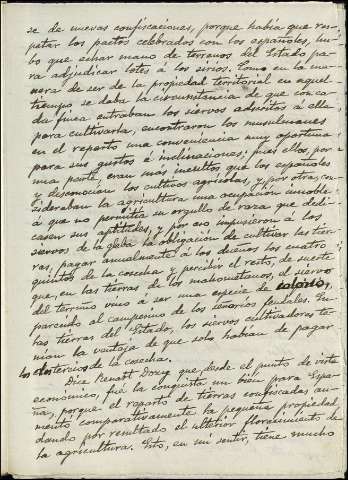 se de nuevas confiscaciones, porque había que res-
petar los pactos celebrados con los españoles, hu-
bo que echar mano de terrenos del Estado pa-
ra adjudicar lotes á los sirios. Como en la ma-
nera de ser de la propiedad territorial en aquel
tiempo se daba la circunstancia de que con ca-
da finca entraban los siervos adscritos á ella
para cultivarla, encontraron los musulmanes
en el reparto una conveniencia muy oportuna
para sus gustos é inclinaciones; pues ellos, por
una parte, eran más incultos que los españoles
y desconocian los cultivos agrícolas, y por otra, con-
sideraban la agricultura una ocupación innoble
á que no permitía su orgullo de raza que dedi-
casen sus aptitudes, y por eso impusieron á los
siervos de la gleba la obligación de cultivar las tier-
ras, pagar anualmente á los dueños los cuatro
quintos de la cosecha y percibir el resto, de suerte
que, en las tierras de los mahometanos, el siervo
del terruño vino á ser una especie de colono,
parecido al campesino de los señoríos feudales. En
las tierras del Estado, los siervos cultivadores te-
nían la ventaja de que solo habían de pagar
los dos tercios de la cosecha.
Dice Renart Dozy que, desde el punto de vista
económico, fué la conquista un bien para Espa-
ña, porque el reparto de tierras confiscadas, au-
mentó comparativamente la pequeña propiedad,
dando por resultado el ulterior florecimiento de
la agricultura. Esto, en mi sentir, tiene mucho